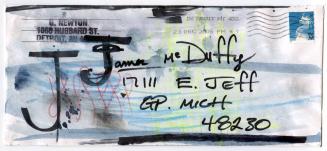 G. NEWTON
1060 HUBBARD ST.
DETROIT, MI
DETROIT MI 482
23 DEC 2005 PM
J. James McDuffy
17111 E. JEFF
GP. MICH
48230